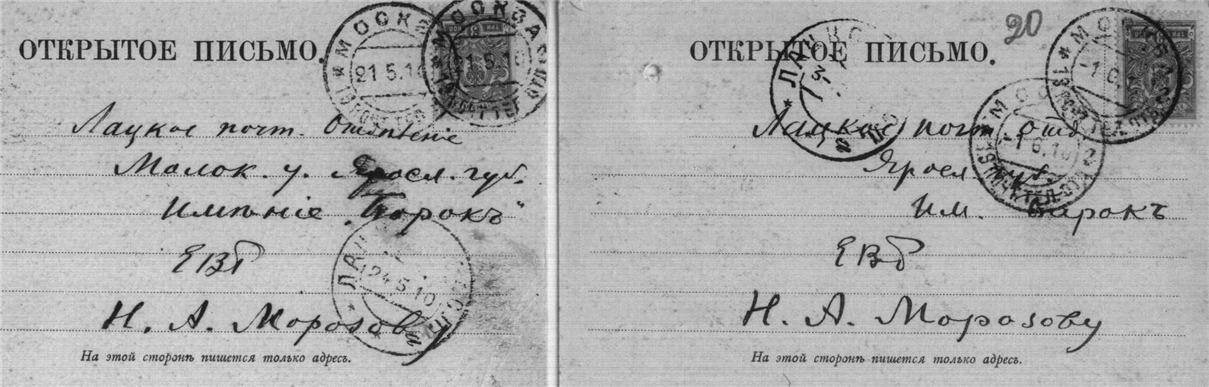 ОТКРЫТОЕ ПИСЬМО.
МОСКВА
21.5.10
МОСКВА
21.5.10
Лацкое почт. Отдѣленіе
Молог. у. Яросл. губ.
Имѣніе „Борокъ"
ЕВБ
24.5.10
Н. А. Морозову
На этой сторонѣ пишется только адресъ.
20
ОТКРЫТОЕ ПИСЬМО.
МОСКВА
МОСКВА
-1.6.10
Лацкое почт. отд.
Яросл. губ.
Им. Борокъ
ЕВБ
Н. А. Морозову
На этой сторонѣ пишется только адресъ.